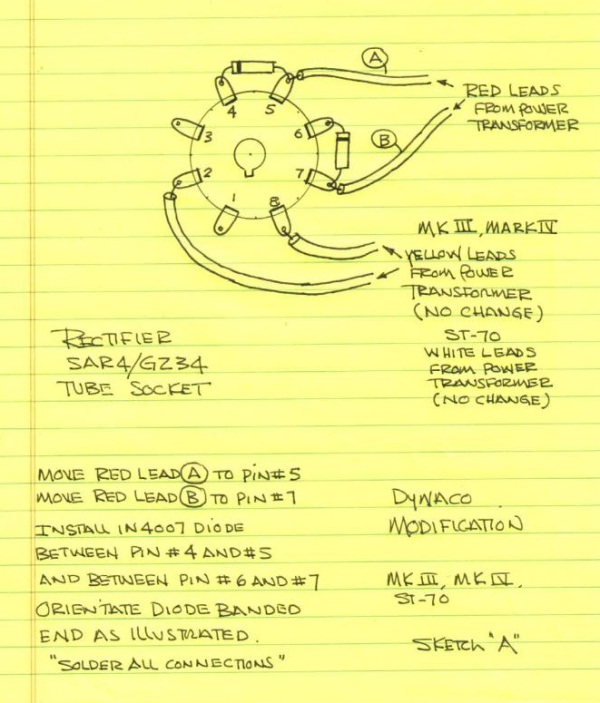 A
RED LEADS
FROM POWER
TRANSFORMER
B
4
5
3
6
2
7
1
8
MK III, MARK IV
YELLOW LEADS
FROM POWER
TRANSFORMER
(NO CHANGE)
ST-70
WHITE LEADS
FROM POWER
TRANSFORMER
(NO CHANGE)
RECTIFIER
5AR4/GZ34
TUBE SOCKET
MOVE RED LEAD A TO PIN #5
MOVE RED LEAD B TO PIN #7
INSTALL IN4007 DIODE
BETWEEN PIN #4 AND #5
AND BETWEEN PIN #6 AND #7
ORIENTATE DIODE BANDED
END AS ILLUSTRATED.
"SOLDER ALL CONNECTIONS"
DYNACO
MODIFICATION
MK III, MK IV.
ST-70
SKETCH "A"